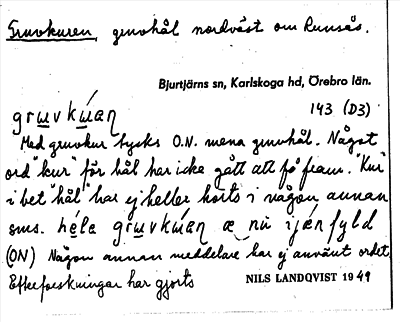 Gruvkuren, gruvhål nordväst om Runsås.
Bjurtjärns sn, Karlskoga hd, Örebro län.
gruvkúaɳ 143 (D3)
Med gruvkur tycks O.N. mena gruvhål. Något
ord "kur" för hål har icke gått att få fram. "Kur"
i bet "hål" har ej heller hörts i någon annan
sms. héla gruvkúaɳ æ nu ijénfyld
(ON) Någon annan meddelare har ej använt ordet
Efterforskningar har gjorts NILS LANDQVIST 1949